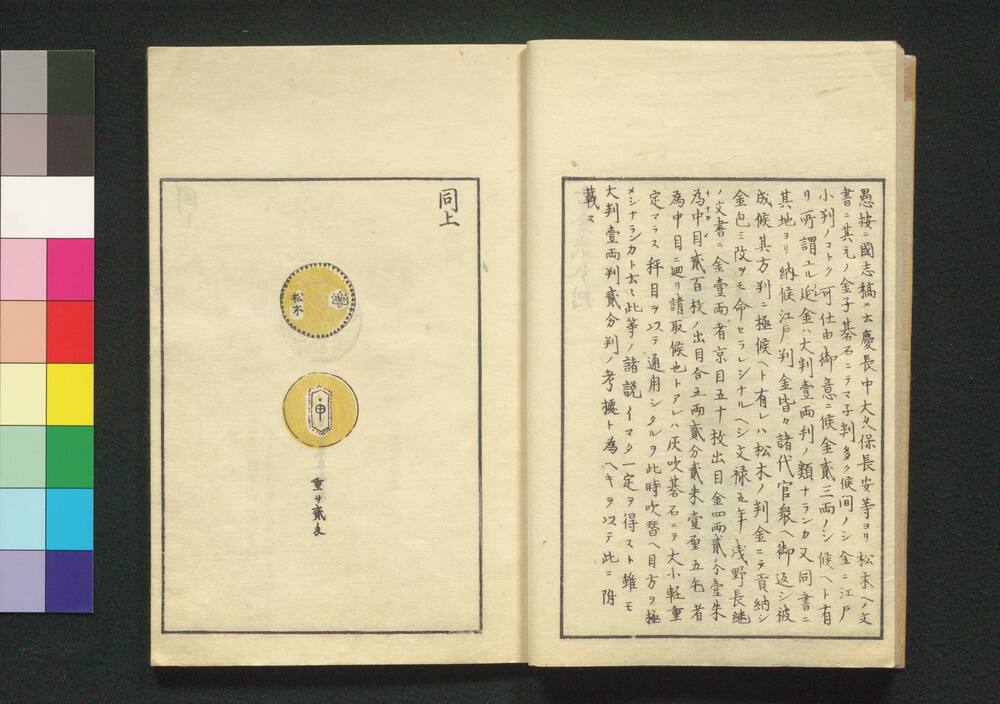 愚按ニ國志稿ニ云慶長中大久保長安等ヨリ松木ヘノ文
書ニ其元ノ金子碁石ニテマ子判多ク候间ノシ金ニ江戸
小判ノコトク可仕由御意ニ候金貳三両ノシ候ヘト有
リ所謂ユル延金ハ大判壹両判ノ類ナランカ又同書ニ
其地ヨリ納候江戸判金皆々諸代官衆ヘ御返シ被
成候其方判ニ極候ヘト有レハ松木ノ判金ニテ貢納シ
金包ミ改ヲモ命セラレシナルヘシ文禄五年浅野長継
ノ文書ニ金壹両者京目五十枚出目金四両貳分壹朱
為中目貳百枚ノ出目合五両貳分貳朱壹重五毛者
為中目ニ廻リ請取候也トアレハ灰吹碁石ニテ大小軽重
定マラス秤目ヲ以テ通用シタルヲ此時吹替ヘ目方ヲ極
メシナランカト云々此等ノ諸説イマタ一定ヲ得スト雖モ
大判壹両判貳分判ノ考據ト為ヘキヲ以テ此ニ附
載ス
同上
松木
甲
重サ貳匁